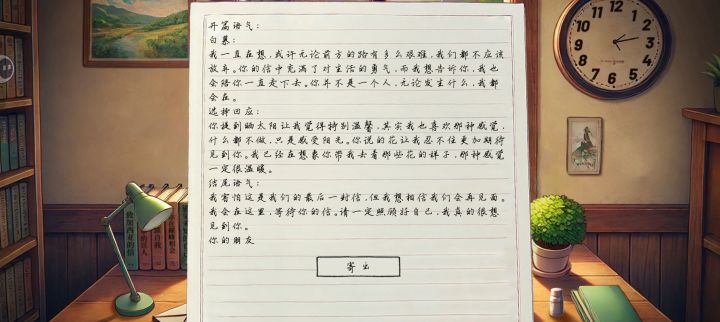 开篇语气：
白慕：
我一直在想，或许无论前方的路有多么艰难，我们都不应该
放弃。你的信中充满了对生活的勇气，而我想告诉你，我也
会陪你一直走下去。你并不是一个人，无论发生什么，我都
会在。
选择回应：
你提到晒太阳让我觉得特别温馨，其实我也喜欢那种感觉，
什么都不做，只是感受阳光。你说的花让我忍不住更加期待
见到你。我已经在想象你带我去看那些花的样子，那种感觉
一定很温暖。
结尾语气：
我害怕这是我们的最后一封信，但我想相信我们会再见面。
我会在这里，等待你的信。请一定照顾好自己，我真的很想
见到你。
你的朋友
寄出